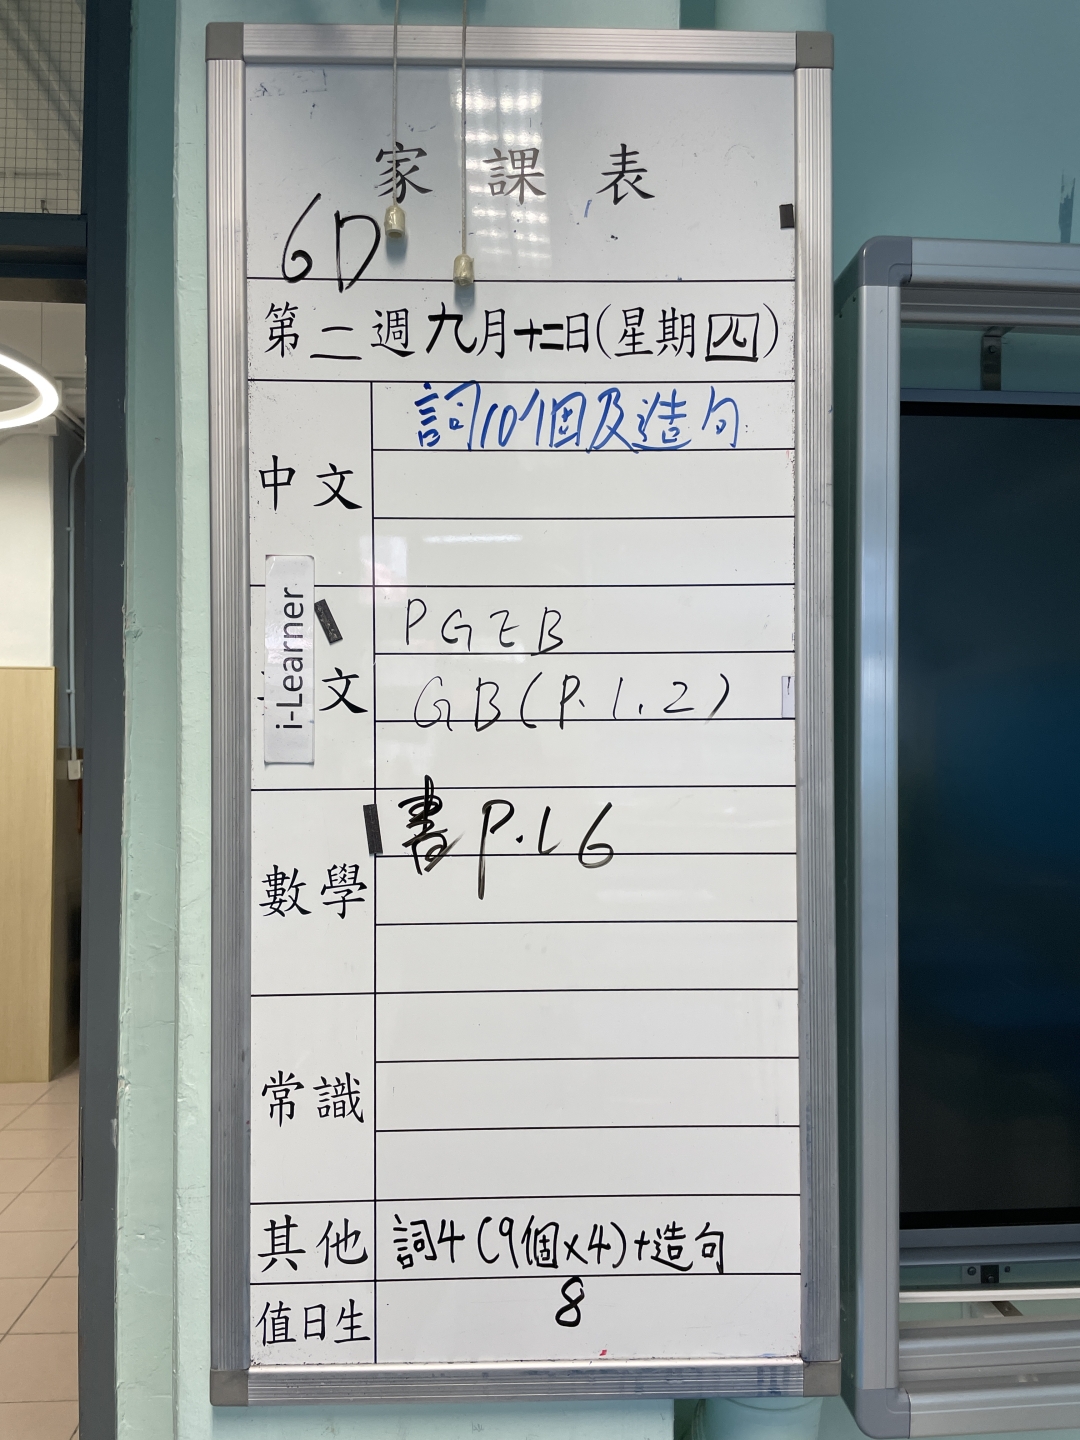 家課表
6D
第二週九月十二日(星期四)
中文
詞10個及造句
i-Learner
文
PGEB
GB(P.1.2)
數學
書P.16
常識
其他
詞4(9個x4)+造句
值日生
8